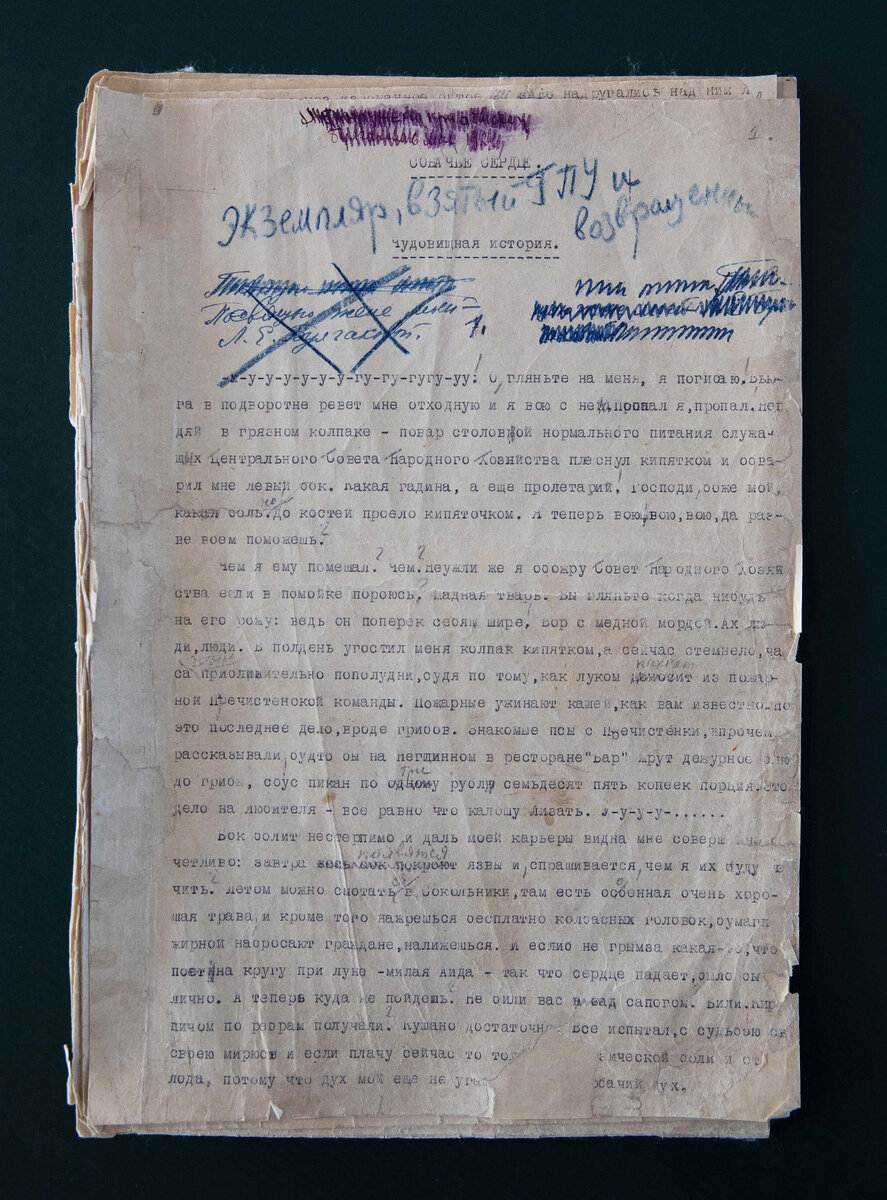 надругались над ним
1.
СОБАЧЬЕ СЕРДЦЕ
Экземпляр, взятый ГПУ и
возвращенный
Чудовищная история.
Посвящено жене моей
Л. Е. Булгаковой.
-у-у-у-у-у-у-гу-гу-гугу-уу! О, гляньте на меня, я погибаю. Вью-
га в подворотне ревет мне отходную и я вою с ней. Пропал я, пропал. Нег
дяй в грязном колпаке - повар столовой нормального питания служа-
щих Центрального Совета Народного Хозяйства плеснул кипятком и обва-
рил мне левый бок. Какая гадина, а еще пролетарий! Господи, боже мой,
боль. До костей проело кипяточком. Я теперь вою, вою, вою, да раз-
ве воем поможешь?
Чем я ему помешал? Чем? Неужли же я обожру Совет Народного Хозяй
ства если в помойке пороюсь? Жадная тварь. Вы гляньте когда нибудь
на его рожу: ведь он поперек себя шире, Вор с медной мордой. Ах лю-
ди, люди. В полдень угостил меня колпак кипятком, а сейчас стемнело, ча
са приблизительно пополудни, судя по тому, как луком из пожар-
ной Пречистенской команды. Пожарные ужинают кашей, как вам известно. Но
это последнее дело, вроде грибов. Знакомые псы с Пречистенки, впрочем
рассказывали, будто бы на Неглинном в ресторане "Бар" жрут дежурное блю
до грибы, соус пикан по три рубля семьдесят пять копеек порция. Это
дело на любителя - все равно что калошу лизать. У-у-у-у-......
Бок болит нестерпимо и даль моей карьеры видна мне соверш
четливо: завтра появятся язвы и, спрашивается, чем я их буду
чить? Летом можно смотать в Сокольники, там есть особенная очень хоро-
шая трава и кроме того нажрешься бесплатно колбасных головок, бумаги
жирной набросают граждане, налижешься. И еслиб не грымза какая-то, что
поет на кругу при луне -милая Аида - так что сердце падает, было бы
лично. А теперь куда же пойдешь? Не били вас в зад сапогом? Били. Кир
пичом по ребрам получали? Кушано достаточно. Все испытал, с судьбою
своею мирюсь и если плачу сейчас то то зической боли и от
лода, потому что дух мой еще не уга бачий дух.